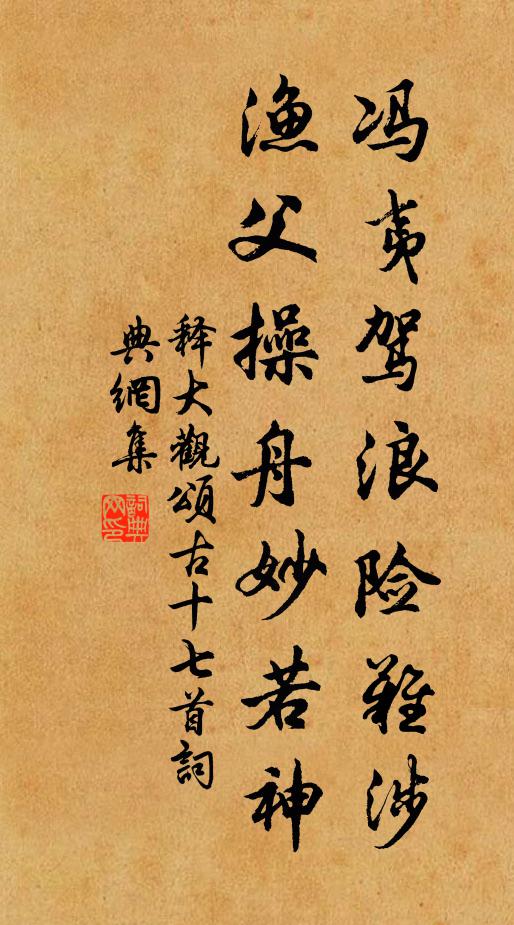 冯夷驾浪险难涉
渔父操舟妙若神
释大觀頌古十七首詞
典網集
詞典
网印